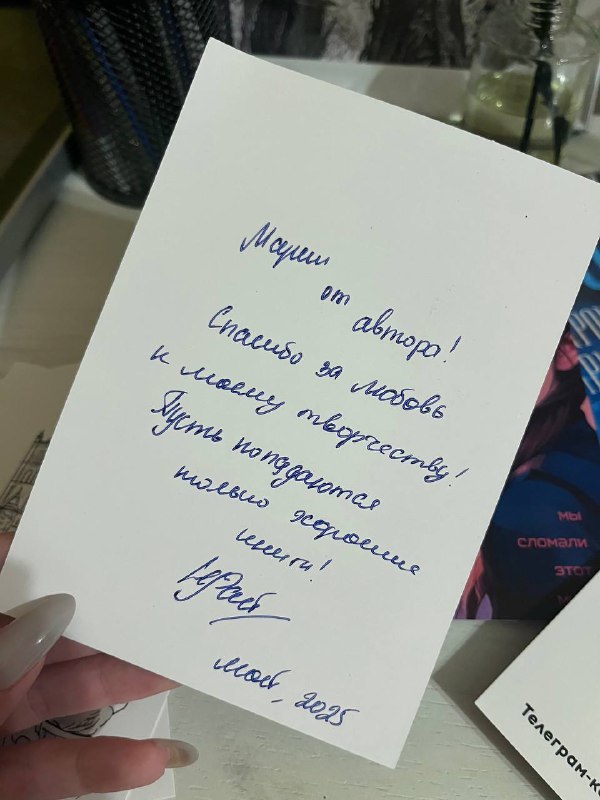 Марии
от автора!
Спасибо за любовь
к моему творчеству!
Пусть попадаются
только хорошие
книги!
май, 2025
МЫ
СЛОМАЛИ
ЭТОТ
Телеграм-ка